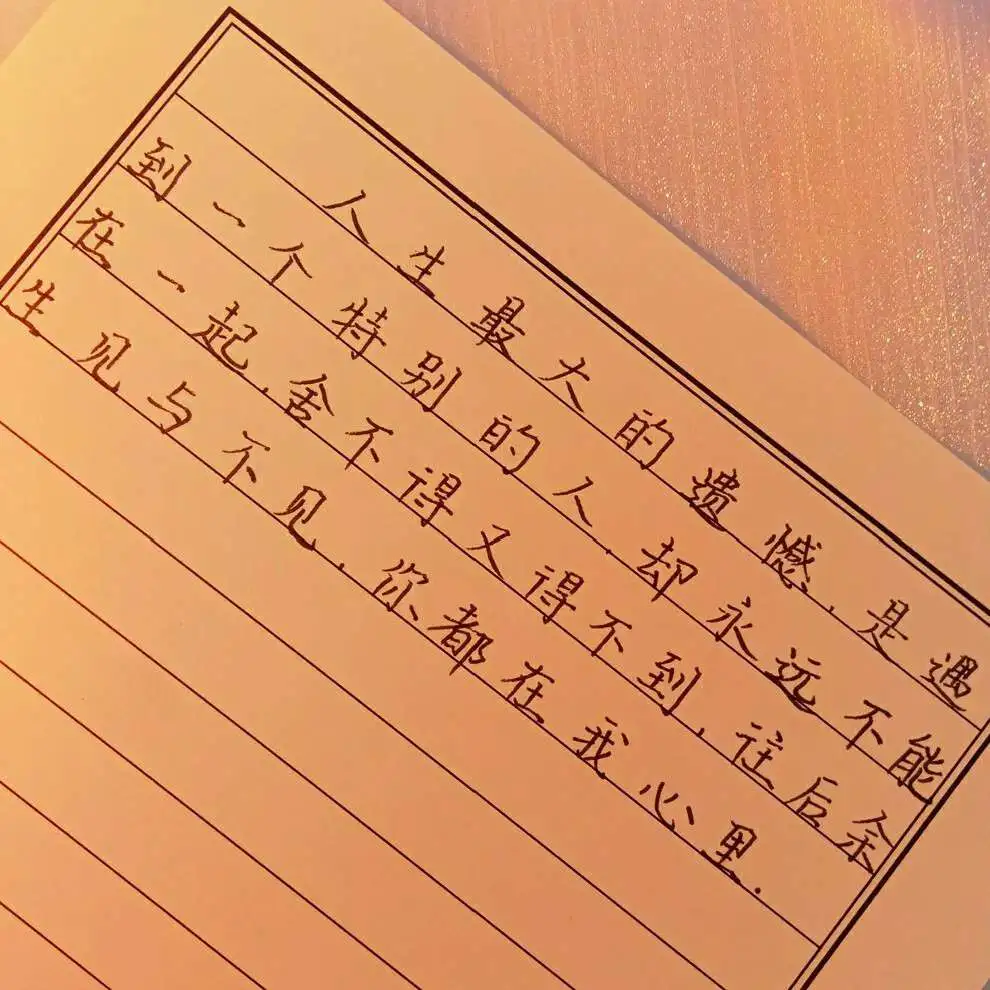 人生最大的遗憾.是遇
到一个特别的人.却永远不能
在一起.舍不得又得不到.往后余
生见与不见.你都在我心里.